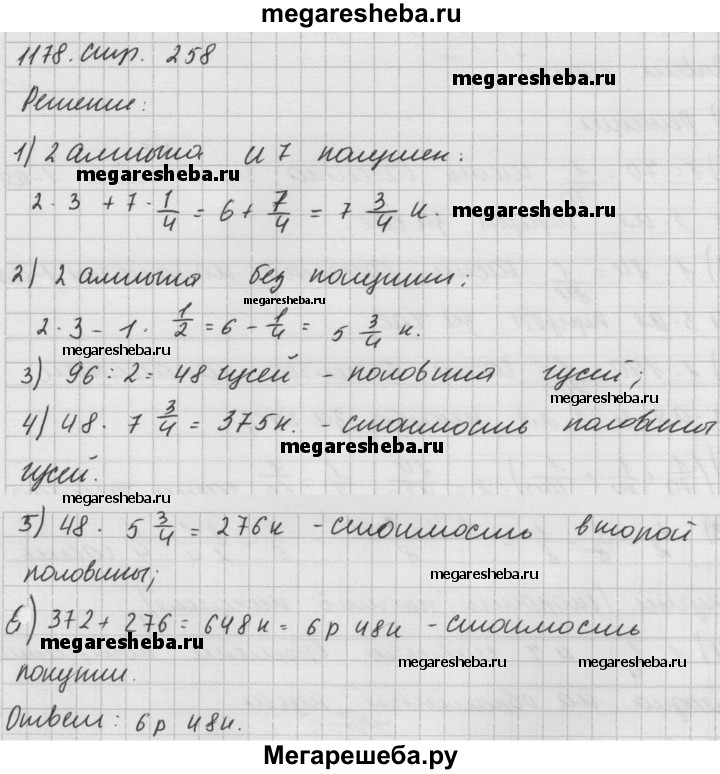 megaresheba.ru
1178. стр. 258
megaresheba.ru
Решение:
1) 2 алтына и 7 полушек:
megaresheba.ru
2 · 3 + 7 · 1/4 = 6 + 7/4 = 7 3/4 к.
megaresheba.ru
2) 2 алтына без полушки:
megaresheba.ru
2 · 3 – 1 · 1/2 = 6 – 1/4 = 5 3/4 к.
megaresheba.ru
3) 96 : 2 = 48 гусей – половина гусей;
megaresheba.ru
4) 48 · 7 3/4 = 375к. – стоимость половины
megaresheba.ru
гусей.
5) 48 · 5 3/4 = 276к – стоимость второй
половины;
megaresheba.ru
6) 372 + 276 = 648к = 6р 48к – стоимость
megaresheba.ru
покупки.
megaresheba.ru
megaresheba.ru
Ответ: 6р 48к.
Мегарешеба.ру